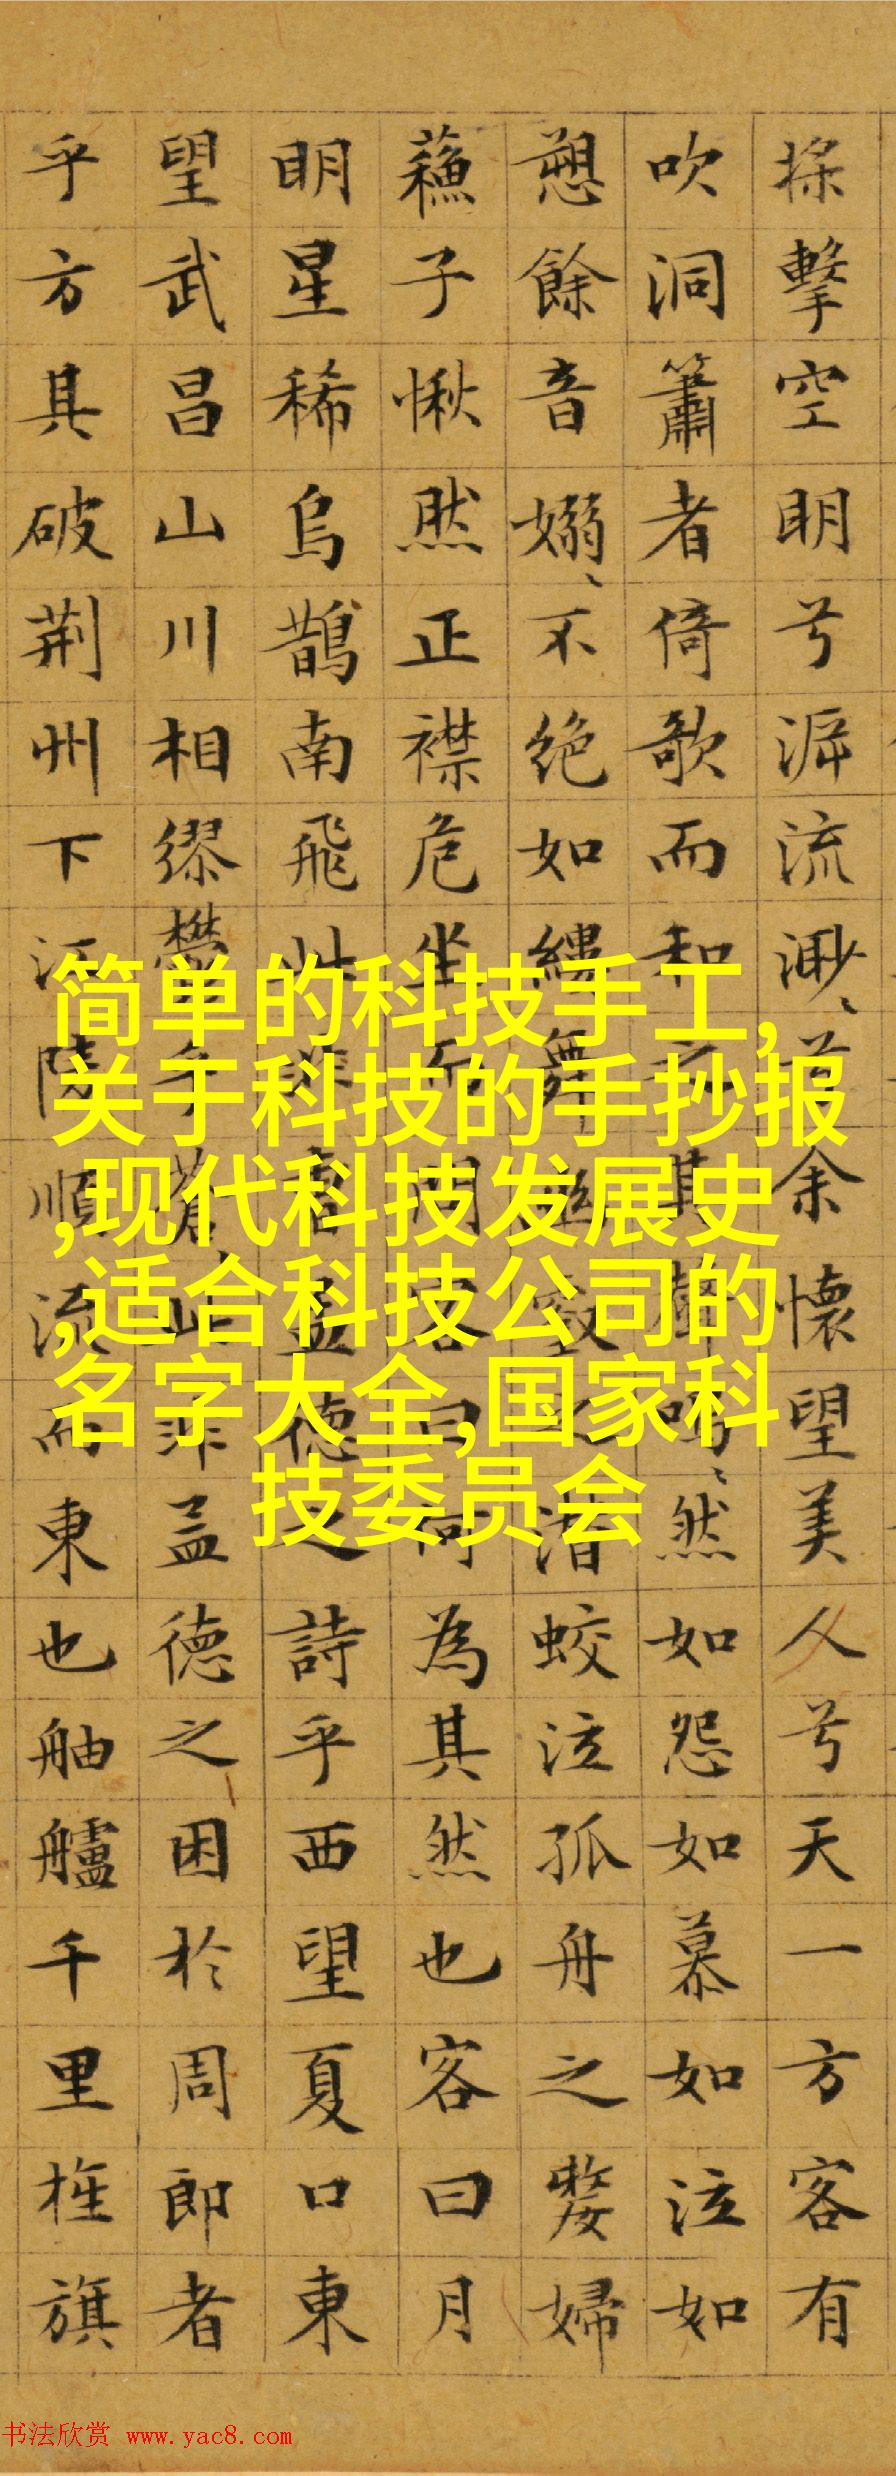 擊空明兮泝流渺〻兮余懷望美人兮天一方客有
吹洞簫者倚歌而和之其聲嗚〻然如怨如慕如泣如
愬餘音嫋〻不絶如縷舞幽壑之潛蛟泣孤舟之嫠婦
蘓子愀然正襟危坐而問客曰何為其然也客曰月
明星稀烏鵲南飛此非曹孟德之詩乎西望夏口東
望武昌山川相繆欝乎蒼〻此非孟德之困於周郎者
乎方其破荆州下江陵順流而東也舳艫千里旌旗
简单的科技手工,
关于科技的手抄报
,现代科技发展史
,适合科技公司的
名字大全,国家科
技委员会
书法欣赏 www.yac8.com